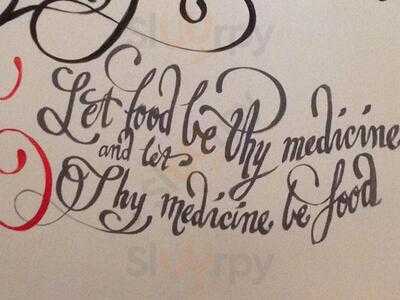 Let food be thy medicine
and let
thy medicine be food